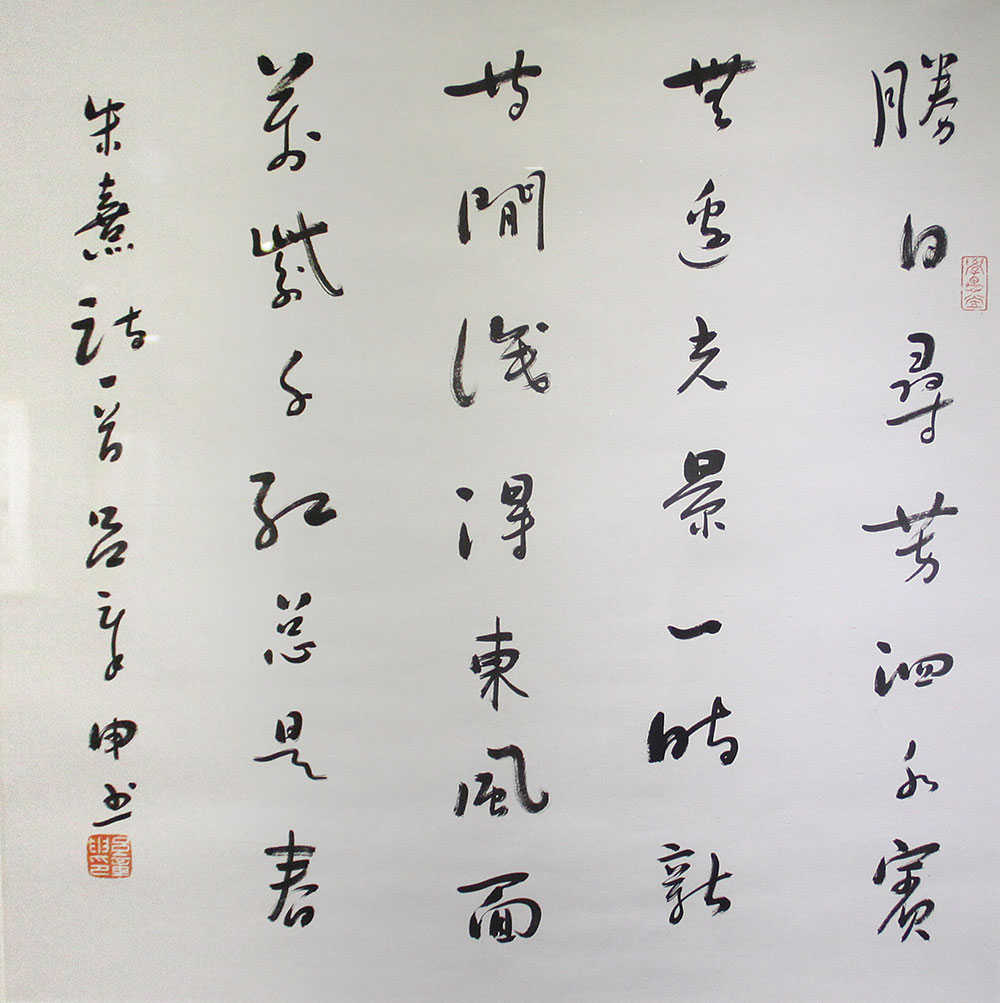 勝日尋芳泗水濱
無邊光景一時新
等閒識得東風面
萬紫千紅總是春
朱熹詩一首 呂章申書
呂章申印